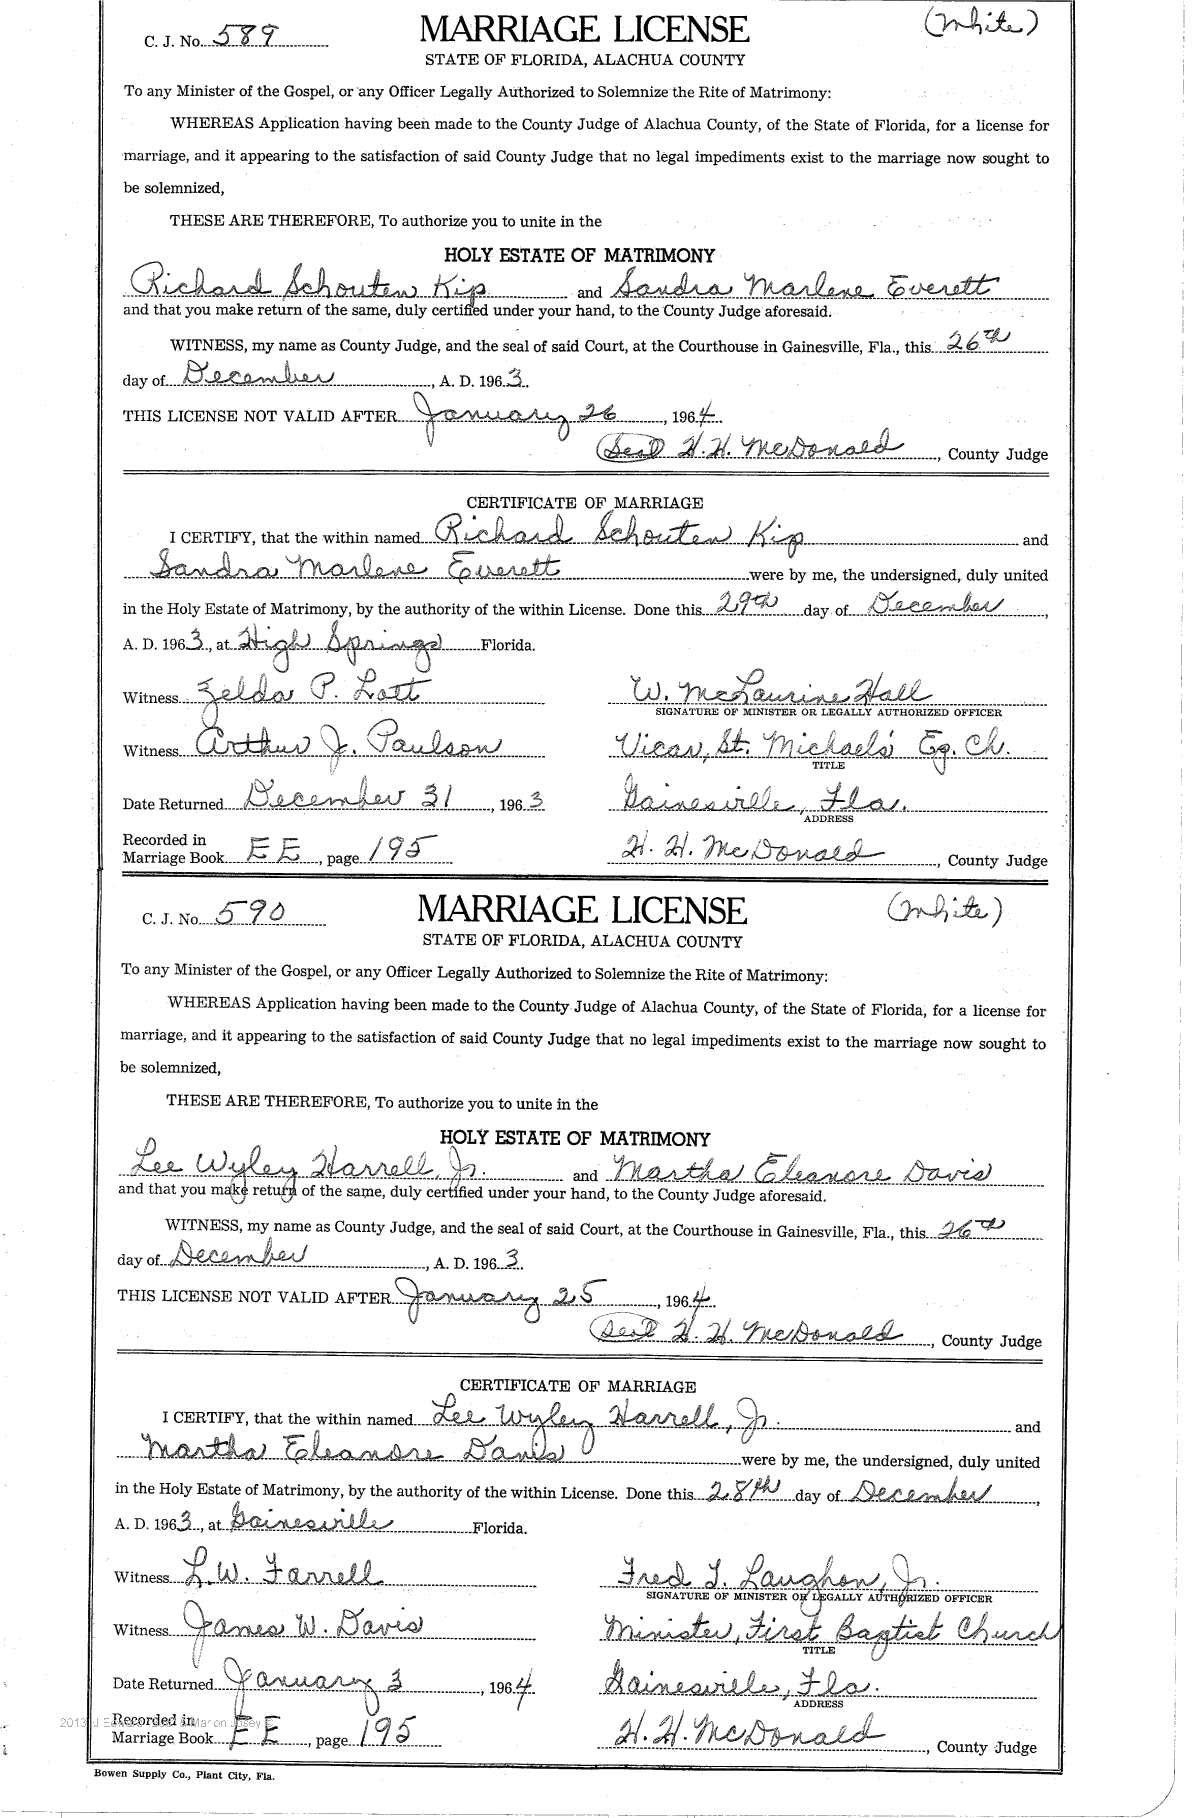 C. J. No. 589 MARRIAGE LICENSE (White)
STATE OF FLORIDA, ALACHUA COUNTY
To any Minister of the Gospel, or any Officer Legally Authorized to Solemnize the Rite of Matrimony:
WHEREAS Application having been made to the County Judge of Alachua County, of the State of Florida, for a license for
marriage, and it appearing to the satisfaction of said County Judge that no legal impediments exist to the marriage now sought to
be solemnized,
THESE ARE THEREFORE, To authorize you to unite in the
HOLY ESTATE OF MATRIMONY
Richard Schouten Kip and Sandra Marlene Everett
and that you make return of the same, duly certified under your hand, to the County Judge aforesaid.
WITNESS, my name as County Judge, and the seal of said Court, at the Courthouse in Gainesville, Fla., this 26th
day of December, A. D. 1963.
THIS LICENSE NOT VALID AFTER January 26, 1964.
(Seal) H. H. McDonald, County Judge
CERTIFICATE OF MARRIAGE
I CERTIFY, that the within named Richard Schouten Kip and
Sandra Marlene Everett were by me, the undersigned, duly united
in the Holy Estate of Matrimony, by the authority of the within License. Done this 29th day of December,
A. D. 1963, at High Springs Florida.
Witness Zelda P. Lott W. McLaurine Hall
SIGNATURE OF MINISTER OR LEGALLY AUTHORIZED OFFICER
Witness Arthur J. Paulson Vicar, St. Michaels' Ep. Ch.
TITLE
Date Returned December 31, 1963 Gainesville, Fla.
ADDRESS
Recorded in
Marriage Book EE, page 195 H. H. McDonald, County Judge
C. J. No. 590 MARRIAGE LICENSE (White)
STATE OF FLORIDA, ALACHUA COUNTY
To any Minister of the Gospel, or any Officer Legally Authorized to Solemnize the Rite of Matrimony:
WHEREAS Application having been made to the County Judge of Alachua County, of the State of Florida, for a license for
marriage, and it appearing to the satisfaction of said County Judge that no legal impediments exist to the marriage now sought to
be solemnized,
THESE ARE THEREFORE, To authorize you to unite in the
HOLY ESTATE OF MATRIMONY
Lee Wyley Harrell, Jr. and Martha Eleanore Davis
and that you make return of the same, duly certified under your hand, to the County Judge aforesaid.
WITNESS, my name as County Judge, and the seal of said Court, at the Courthouse in Gainesville, Fla., this 26th
day of December, A. D. 1963.
THIS LICENSE NOT VALID AFTER January 25, 1964.
(Seal) H. H. McDonald, County Judge
CERTIFICATE OF MARRIAGE
I CERTIFY, that the within named Lee Wyley Harrell, Jr. and
Martha Eleanore Davis were by me, the undersigned, duly united
in the Holy Estate of Matrimony, by the authority of the within License. Done this 28th day of December,
A. D. 1963, at Gainesville Florida.
Witness L. W. Farrell Fred T. Laughon, Jr.
SIGNATURE OF MINISTER OR LEGALLY AUTHORIZED OFFICER
Witness James W. Davis Minister, First Baptist Church
TITLE
Date Returned January 3, 1964 Gainesville, Fla.
ADDRESS
2013 J
Recorded in
Marriage Book EE, page 195 H. H. McDonald, County Judge
Bowen Supply Co., Plant City, Fla.